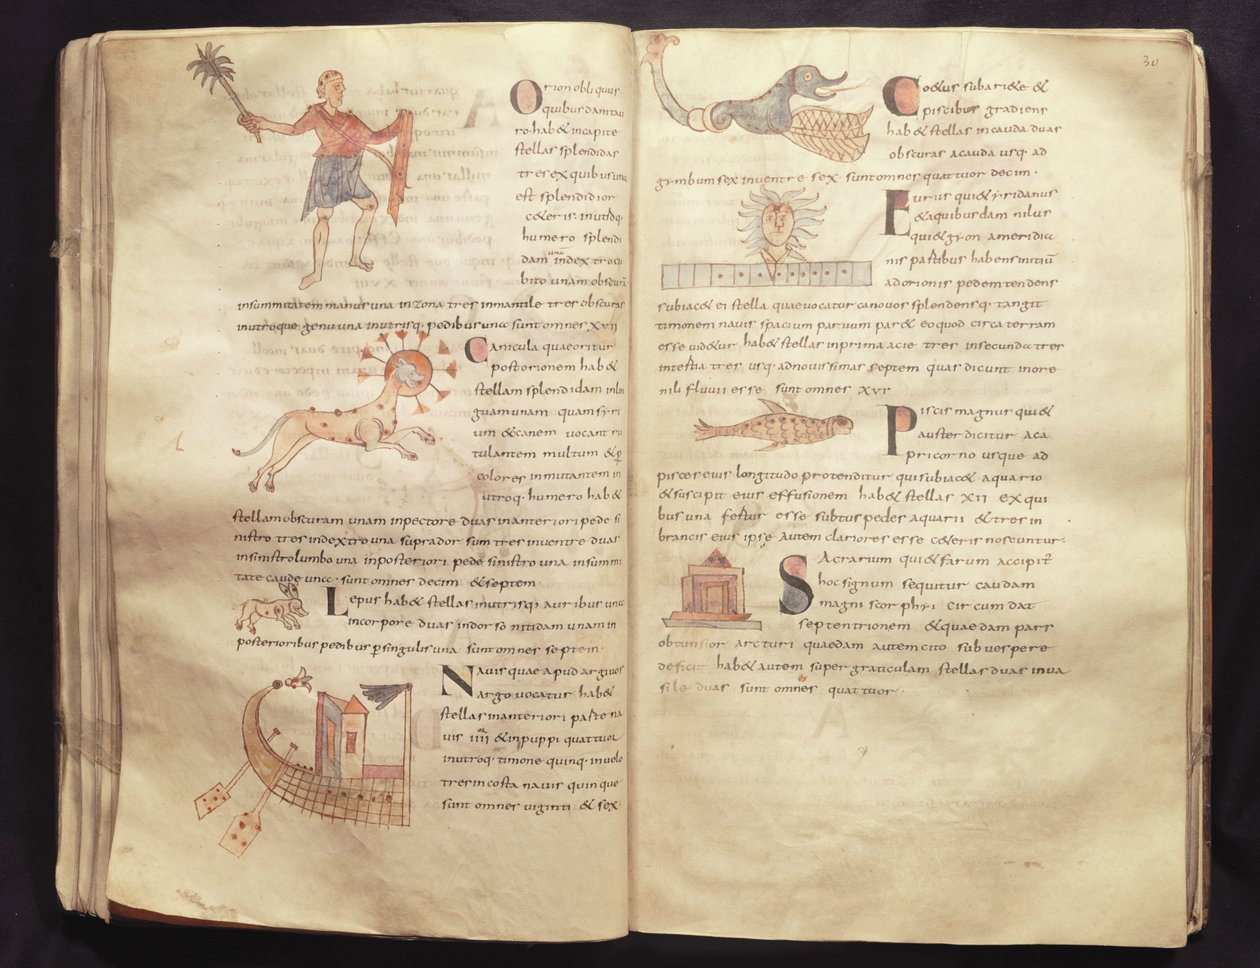 Orion obliquus
quibus dantau
ro hab& incapite
stellas splendidas
tres ex quibus una
est splendidior
c&eris. inutroq.
humero splendi
dam unā index tro cu
bito unam obscurā
insummitatem manus una inzona tres inmantile tres obscuras
inutroque genu una inutrisq. pedibus unā sunt omnes xvii
Canicula quaeoritur
postorionem hab&
stellam splendidam inlin
guam unam quam syri
um &canem vocant ru
tulantem multum &p
colores inmutantem in
utroq. humero hab&
stellam obscuram unam inpectore duas inanteriori pede si
nistro tres indextro una suprador sum tres inventre duas
insinistrolumbo una inposteriori pede sinistro una insummi
tate caude unā. sunt omnes decim &septem.
Lepus hab& stellas inutrisq. auribus unā
incorpore duas indorso nitidam unam in
posterioribus pedibus psingulis una sunt omnes septem.
Navis quae apud argivos
Argo vocatur hab&
stellas inanteriori paste na
vis iiii &inpuppi quattuor
inutroq. timone quinq. invelo
tres incosta navis quinque
sunt omnes viginti & sex.
30
Co&us subari&e &
piscibus gradiens
hab& stellas incauda duas
obscuras acauda usq. ad
gymbum sex inventre sex sunt omnes quattuor decim.
Eurus qui& yridanus
&aquibusdam nilus
qui& gyon ameridia
nis pastibus habens initiū
adorionis pedem tendens
subiac& ei stella quae vocatur canovos splendensq. tangit
timonem navis spacium parvum par& eo quod circa terram
esse vid&ur hab& stellas inprima acie tres insecunda tres
intestia tres usq. adnovissimas septem quas dicunt inore
nili fluvii esse sunt omnes xvi
Piscis magnus qui&
Pauster dicitur aca
pricorno usque ad
pisces eius longitudo protenditur qui subiac& aquario
&suscipit eius effusionem hab& stellas XII ex qui
bus una festur esse subtus pedes aquarii & tres in
brancis eius ipse autem clariores esse c&eris noscuntur.
Sacrarium qui& farum accipit
hoc signum sequitur caudam
magni scorphyi circum dat
septentrionem &quaedam pars
obtunsior arcturi quaedam autem cito sub vespere
deficit hab& autem super graticulam stellas duas inva
sile duas sunt omnes quattuor.